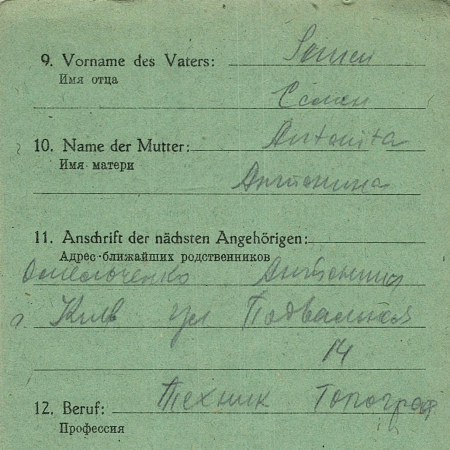 9. Vorname des Vaters: Semen
Имя отца
Семен
10. Name der Mutter: Antonina
Имя матери
Антонина
11. Anschrift der nächsten Angehörigen:
Адрес ближайших родственников
Омельченко Антонина
г. Киев ул Подвальная
14
12. Beruf: Техник Топограф
Профессия